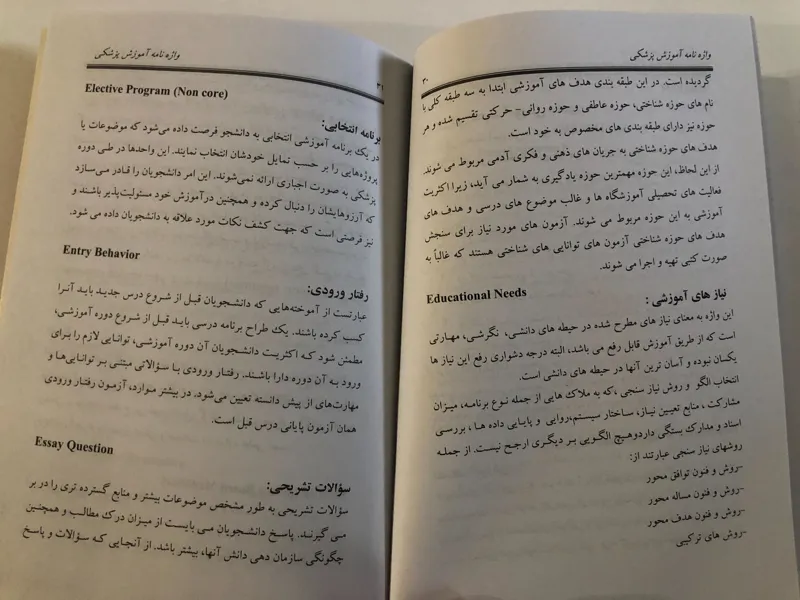 واژه نامه آموزش پزشکی
۳۰
گردیده است. در این طبقه بندی هدف های آموزشی ابتدا به سه طبقه کلی با
نام های حوزه شناختی، حوزه عاطفی و حوزه روانی- حرکتی تقسیم شده و هر
حوزه نیز دارای طبقه بندی های مخصوص به خود است.
هدف های حوزه شناختی به جریان های ذهنی و فکری آدمی مربوط می شوند.
از این لحاظ، این حوزه مهمترین حوزه یادگیری به شمار می آید، زیرا اکثریت
فعالیت های تحصیلی آموزشگاه ها و غالب موضوع های درسی و هدف های
آموزشی به این حوزه مربوط می شوند. آزمون های مورد نیاز برای سنجش
هدف های حوزه شناختی آزمون های توانایی های شناختی هستند که غالباً به
صورت کتبی تهیه و اجرا می شوند.
Educational Needs
نیاز های آموزشی :
این واژه به معنای نیاز های مطرح شده در حیطه های دانشی، نگرشی، مهارتی
است که از طریق آموزش قابل رفع می باشد، البته درجه دشواری رفع این نیاز ها
یکسان نبوده و آسان ترین آنها در حیطه های دانشی است.
انتخاب الگو و روش نیاز سنجی ،که به ملاک هایی از جمله نوع برنامه، میزان
مشارکت ، منابع تعیین نیاز، ساختار سیستم،روایی و پایایی داده ها ، بررسی
اسناد و مدارک بستگی داردوهیچ الگویی بر دیگری ارجح نیست. از جمله
روشهای نیاز سنجی عبارتند از:
-روش و فنون توافق محور
-روش و فنون مساله محور
-روش و فنون هدف محور
-روش های ترکیبی
واژه نامه آموزش پزشکی
۳۱
Elective Program (Non core)
برنامه انتخابی:
در یک برنامه آموزشی انتخابی به دانشجو فرصت داده می‌شود که موضوعات یا
پروژه‌هایی را بر حسب تمایل خودشان انتخاب نمایند. این واحدها در طی دوره
پزشکی به صورت اجباری ارائه نمی‌شوند. این امر دانشجویان را قادر می‌سازد
که آرزوهایشان را دنبال کرده و همچنین درآموزش خود مسئولیت‌پذیر باشند و
نیز فرصتی است که جهت کشف نکات مورد علاقه به دانشجویان داده می شود.
Entry Behavior
رفتار ورودی:
عبارتست از آموخته‌هایی که دانشجویان قبل از شروع درس جدید باید آنرا
کسب کرده باشند. یک طراح برنامه درسی باید قبل از شروع دوره آموزشی،
مطمئن شود که اکثریت دانشجویان آن دوره آموزشی، توانایی لازم را برای
ورود به آن دوره دارا باشند. رفتار ورودی با سؤالاتی مبتنی بر توانایی‌ها و
مهارت‌های از پیش دانسته تعیین می‌شود. در بیشتر موارد، آزمون رفتار ورودی
همان آزمون پایانی درس قبل است.
Essay Question
سؤالات تشریحی:
سؤالات تشریحی به طور مشخص موضوعات بیشتر و منابع گسترده تری را در بر
می گیرند. پاسخ دانشجویان می بایست از میزان درک مطالب و همچنین
چگونگی سازمان دهی دانش آنها، بیشتر باشد. از آنجایی که سؤالات و پاسخ